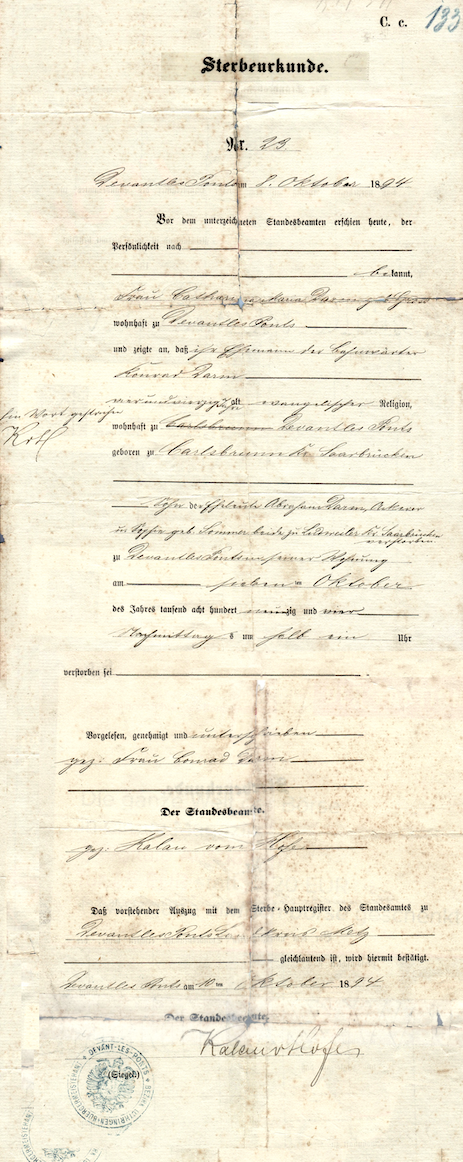 C. c. 133
Sterbeurkunde.
Nr. 23.
Devant les Ponts am 8. Oktober 1894
Vor dem unterzeichneten Standesbeamten erschien heute, der
Persönlichkeit nach
bekannt,
Frau Catharina Maria Darm geb.
wohnhaft zu Devant les Ponts
und zeigte an, daß ihr Ehemann der Bahnwärter
Konrad Darm
vierundvierzig Jahre alt evangelischer Religion,
Ein Wort gestrichen
wohnhaft zu Carlsbrunn Devant les Ponts
geboren zu Carlsbrunn Kr. Saarbrücken
Sohn der Eheleute Abraham Darm, Ackerer
u Sophie geb. Sommer beide zu Kr. Saarbrücken
verstorben
zu Devant les Ponts in seiner Wohnung
am sieben ten Oktober
des Jahres tausend acht hundert neunzig und vier
Nachmittag s um halb ein Uhr
verstorben sei
Vorgelesen, genehmigt und unterschrieben
gez. Frau Conrad Darm
Der Standesbeamte.
gez. Kalau vom Hofe
Daß vorstehender Auszug mit dem Sterbe-Hauptregister des Standesamtes zu
Devant les Ponts Landkreis Metz
gleichlautend ist, wird hiermit bestätigt.
Devant les Ponts am 10 ten Oktober 1894
Der Standesbeamte.
Kalau v Hofe
(Siegel)
DEVANT-LES-PONTS